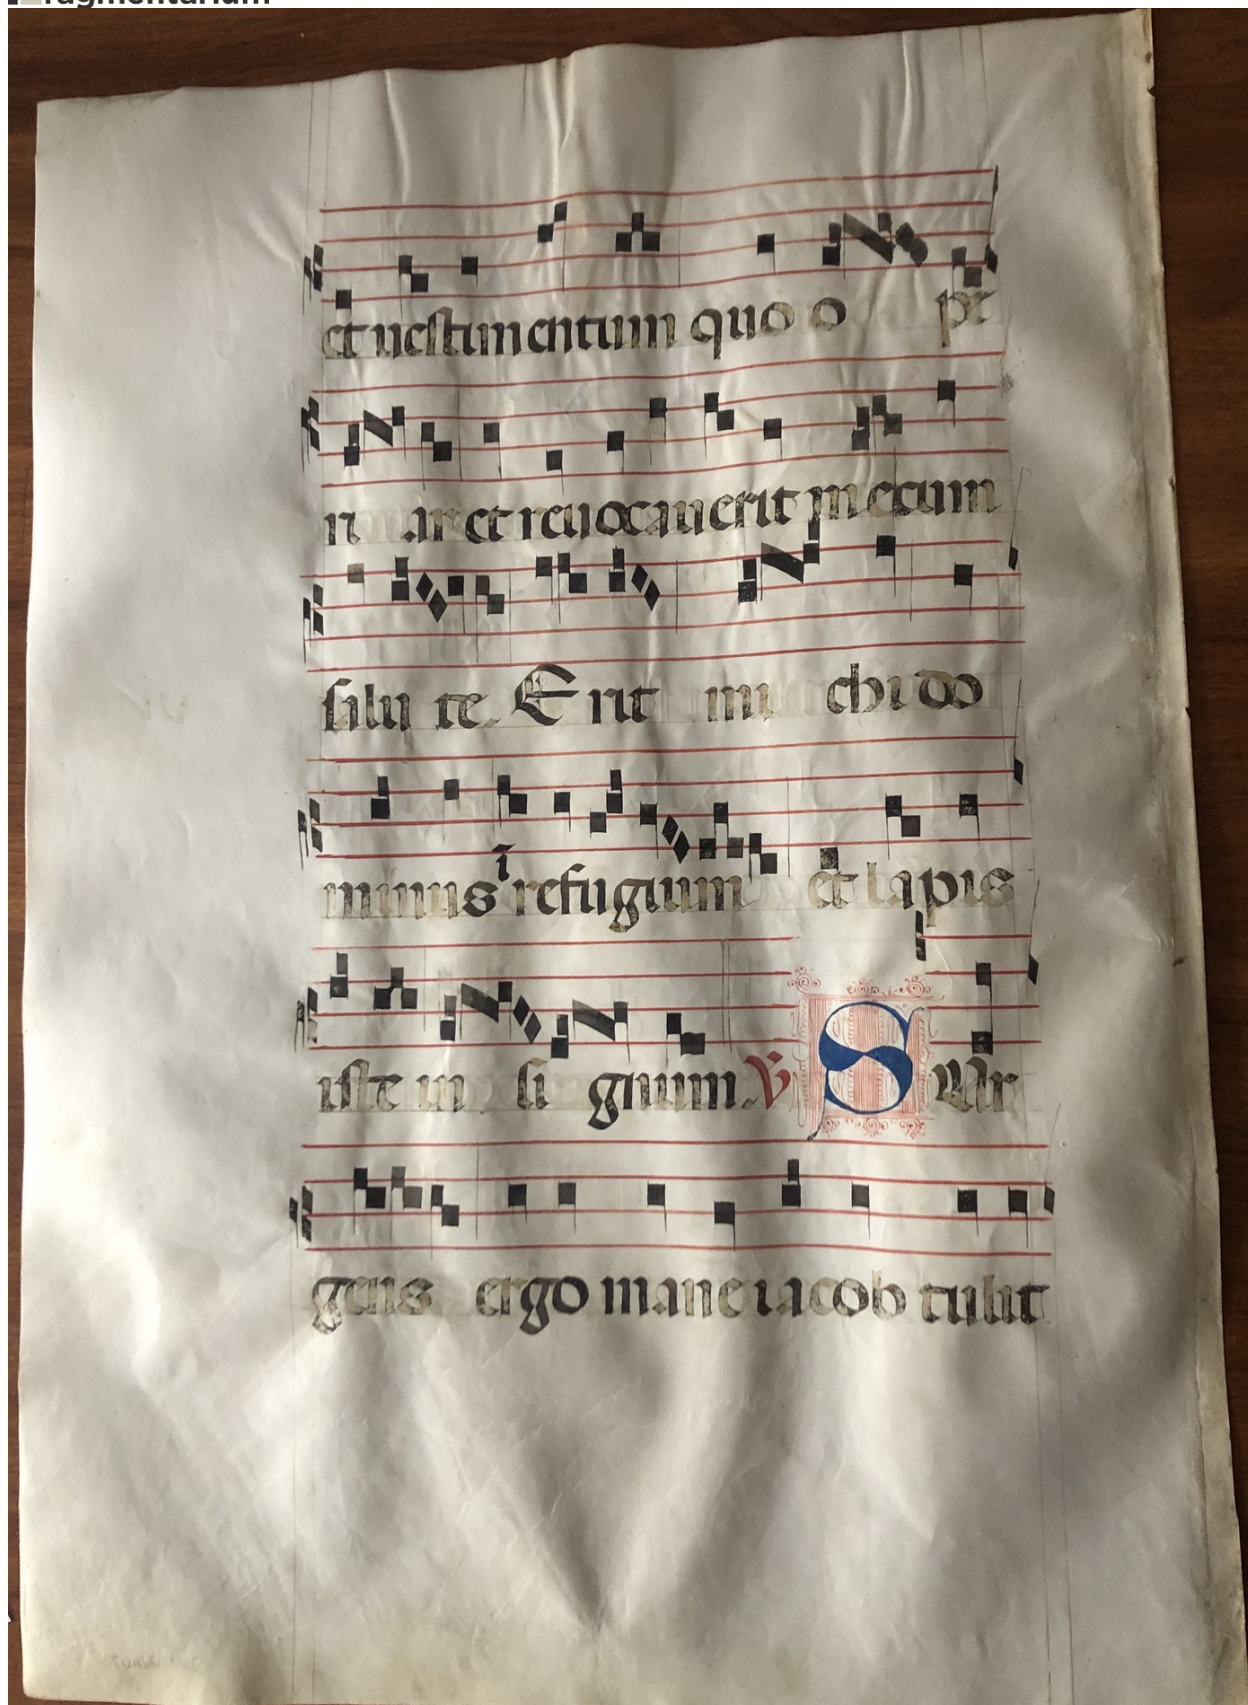 ragmentarium
et uestimentum quo o pe
ri ar et reuocauerit me cum
salu te. Erit mi chi do
minus i refugium et lapis
iste in si gnum. V Sur
gens ergo mane iacob tulit